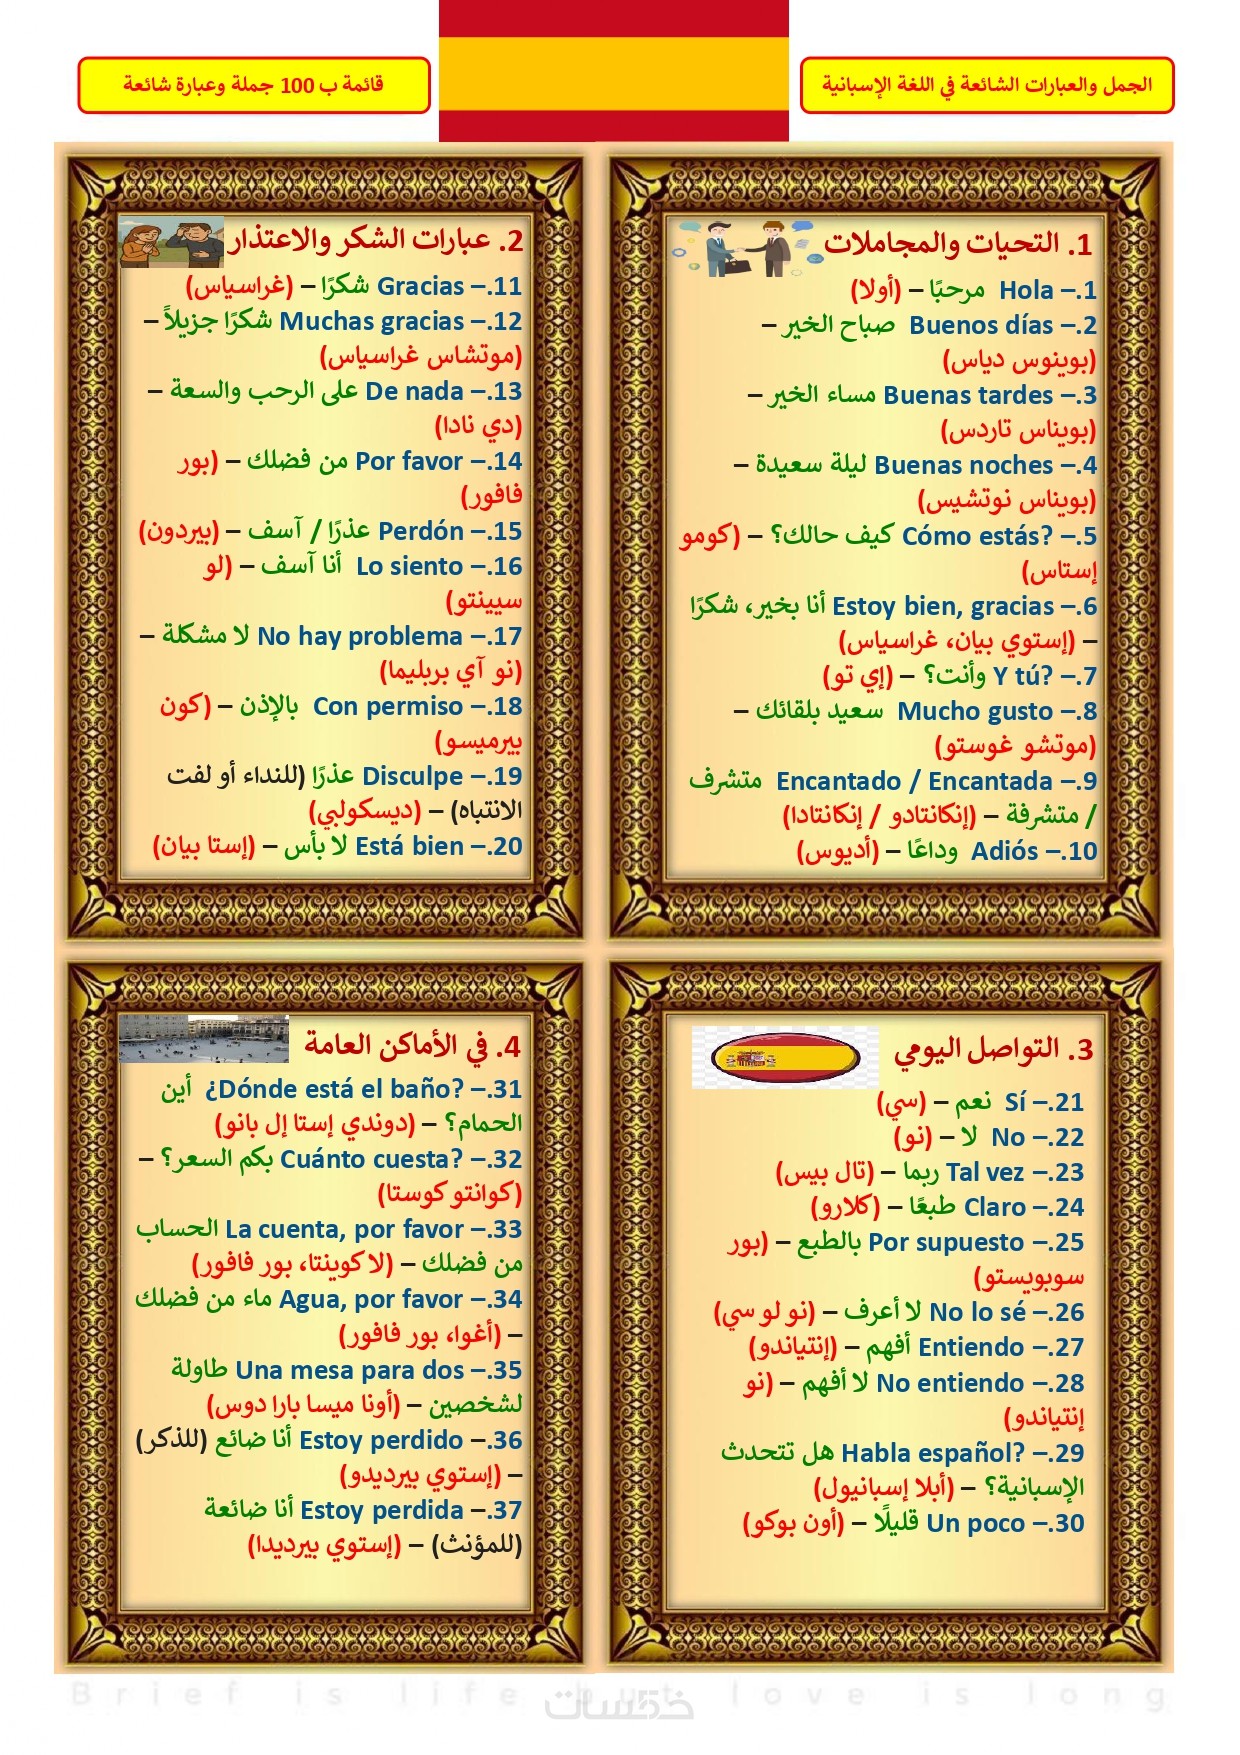 الجمل والعبارات الشائعة في اللغة الإسبانية
قائمة ب 100 جملة وعبارة شائعة
1. التحيات والمجاملات
1.– Hola مرحبًا – (أولا)
2.– Buenos días صباح الخير –
(بوينوس دياس)
3.– Buenas tardes مساء الخير –
(بويناس تاردس)
4.– Buenas noches ليلة سعيدة –
(بويناس نوتشيس)
5.– Cómo estás? كيف حالك؟ – (كومو
إستاس)
6.– Estoy bien, gracias أنا بخير، شكرًا
– (إستوي بيان، غراسياس)
7.– Y tú? وأنت؟ – (إي تو)
8.– Mucho gusto سعيد بلقائك –
(موتشو غوستو)
9.– Encantado / Encantada متشرف
/ متشرفة – (إنكانتادو / إنكانتادا)
10.– Adiós وداعًا – (أديوس)
2. عبارات الشكر والاعتذار
11.– Gracias شكرًا – (غراسياس)
12.– Muchas gracias شكرًا جزيلاً –
(موتشاس غراسياس)
13.– De nada على الرحب والسعة –
(دي نادا)
14.– Por favor من فضلك – (بور
فافور)
15.– Perdón عذرًا / آسف – (بيردون)
16.– Lo siento أنا آسف – (لو
سيينتو)
17.– No hay problema لا مشكلة –
(نو آي بربليما)
18.– Con permiso بالإذن – (كون
بيرميسو)
19.– Disculpe عذرًا (للنداء أو لفت
الانتباه) – (ديسكولبي)
20.– Está bien لا بأس – (إستا بيان)
3. التواصل اليومي
21.– Sí نعم – (سي)
22.– No لا – (نو)
23.– Tal vez ربما – (تال بيس)
24.– Claro طبعًا – (كلارو)
25.– Por supuesto بالطبع – (بور
سوبويستو)
26.– No lo sé لا أعرف – (نو لو سي)
27.– Entiendo أفهم – (إنتياندو)
28.– No entiendo لا أفهم – (نو
إنتياندو)
29.– Habla español? هل تتحدث
الإسبانية؟ – (أبلا إسبانيول)
30.– Un poco قليلًا – (أون بوكو)
4. في الأماكن العامة
31.– ¿Dónde está el baño? أين
الحمام؟ – (دوندي إستا إل بانو)
32.– Cuánto cuesta? بكم السعر؟ –
(كوانتو كوستا)
33.– La cuenta, por favor الحساب
من فضلك – (لا كوينتا، بور فافور)
34.– Agua, por favor ماء من فضلك
– (أغوا، بور فافور)
35.– Una mesa para dos طاولة
لشخصين – (أونا ميسا بارا دوس)
36.– Estoy perdido أنا ضائع (للذكر)
– (إستوي بيرديدو)
37.– Estoy perdida أنا ضائعة
(للمؤنث) – (إستوي بيرديدا)
Brief is life but love is long
خمسات